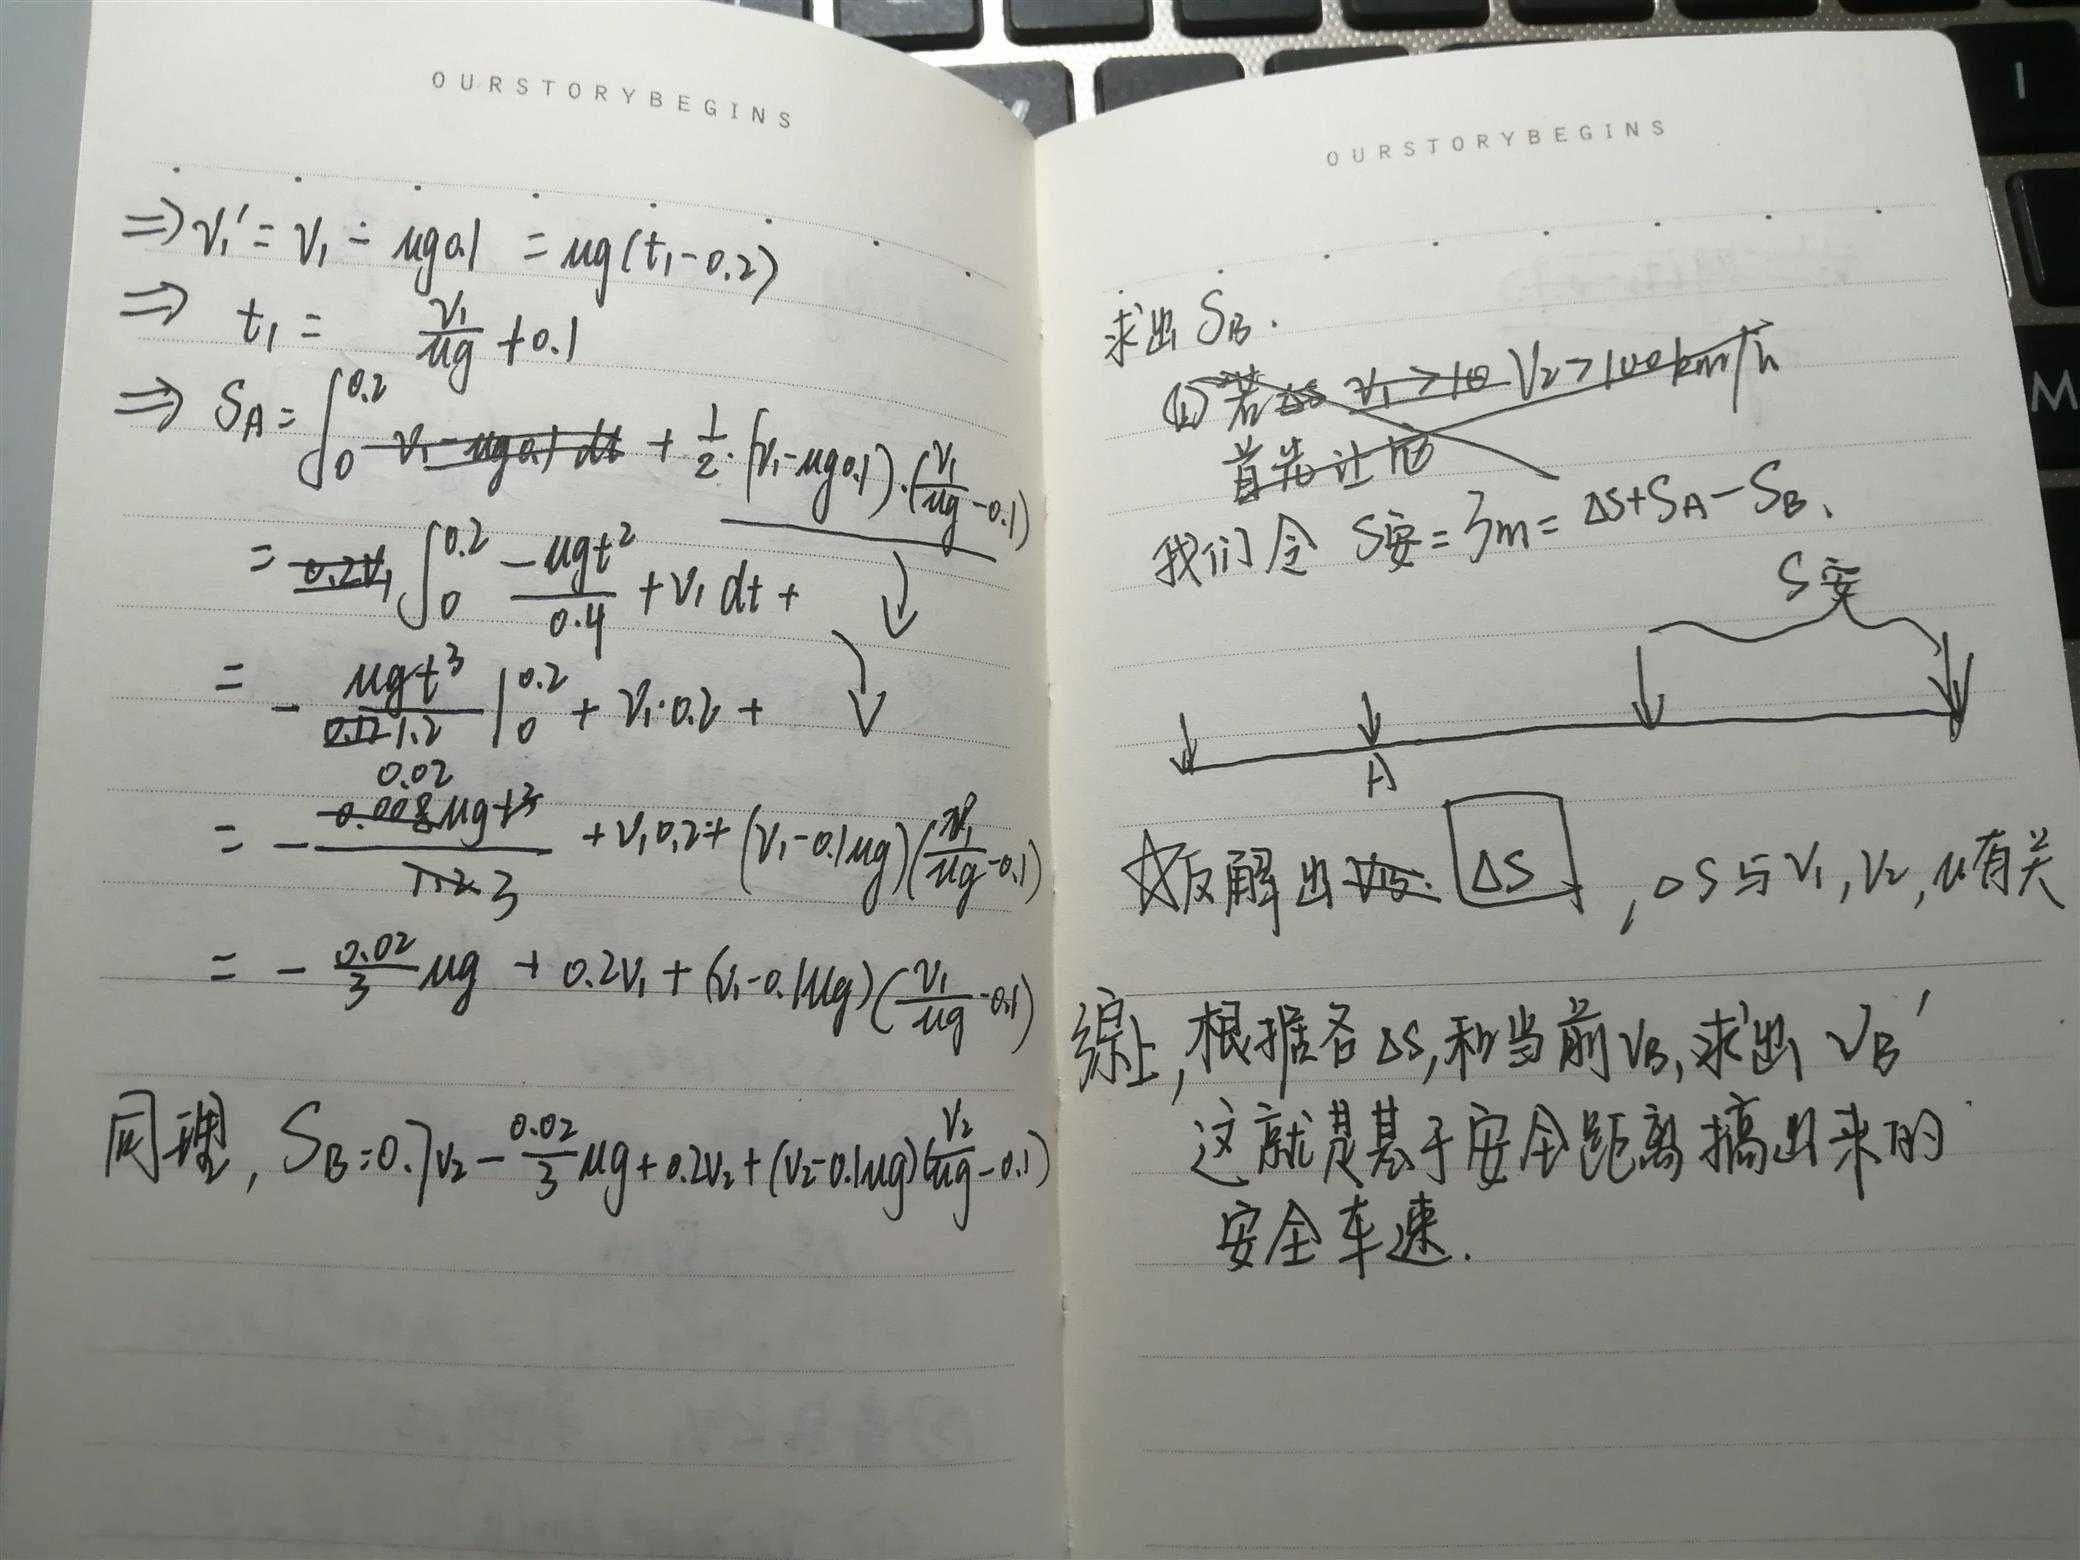 OURSTORYBEGINS
⇒ v₁' = v₁ - μg0.1 = μg(t₁-0.2)
⇒ t₁ = v₁/μg + 0.1
⇒ S_A = ∫₀^0.2 v₁ - μg0.1 dt + 1/2·(v₁-μg0.1)·(v₁/μg - 0.1)
= 0.2v₁ ∫₀^0.2 -μgt²/0.4 + v₁ dt +
= - μgt³/1.2 |₀^0.2 + v₁·0.2 +
= - 0.02 0.008μgt³/1.2 3 + v₁0.2 + (v₁-0.1μg)(v₁/μg - 0.1)
= - 0.02/3 μg + 0.2v₁ + (v₁-0.1μg)(v₁/μg - 0.1)
同理, S_B = 0.7v₂ - 0.02/3 μg + 0.2v₂ + (v₂-0.1μg)(v₂/μg - 0.1)
OURSTORYBEGINS
求出 S_B.
若ΔS v₁>10 V₂>100km/h
首先计
我们令 S安 = 3m = ΔS+S_A-S_B.
S安
A
☆反解出 ΔS, ΔS与v₁,v₂,μ有关
综上,根据各ΔS,和当前v_B,求出 v_B'
这就是基于安全距离搞出来的
安全车速.
I
M